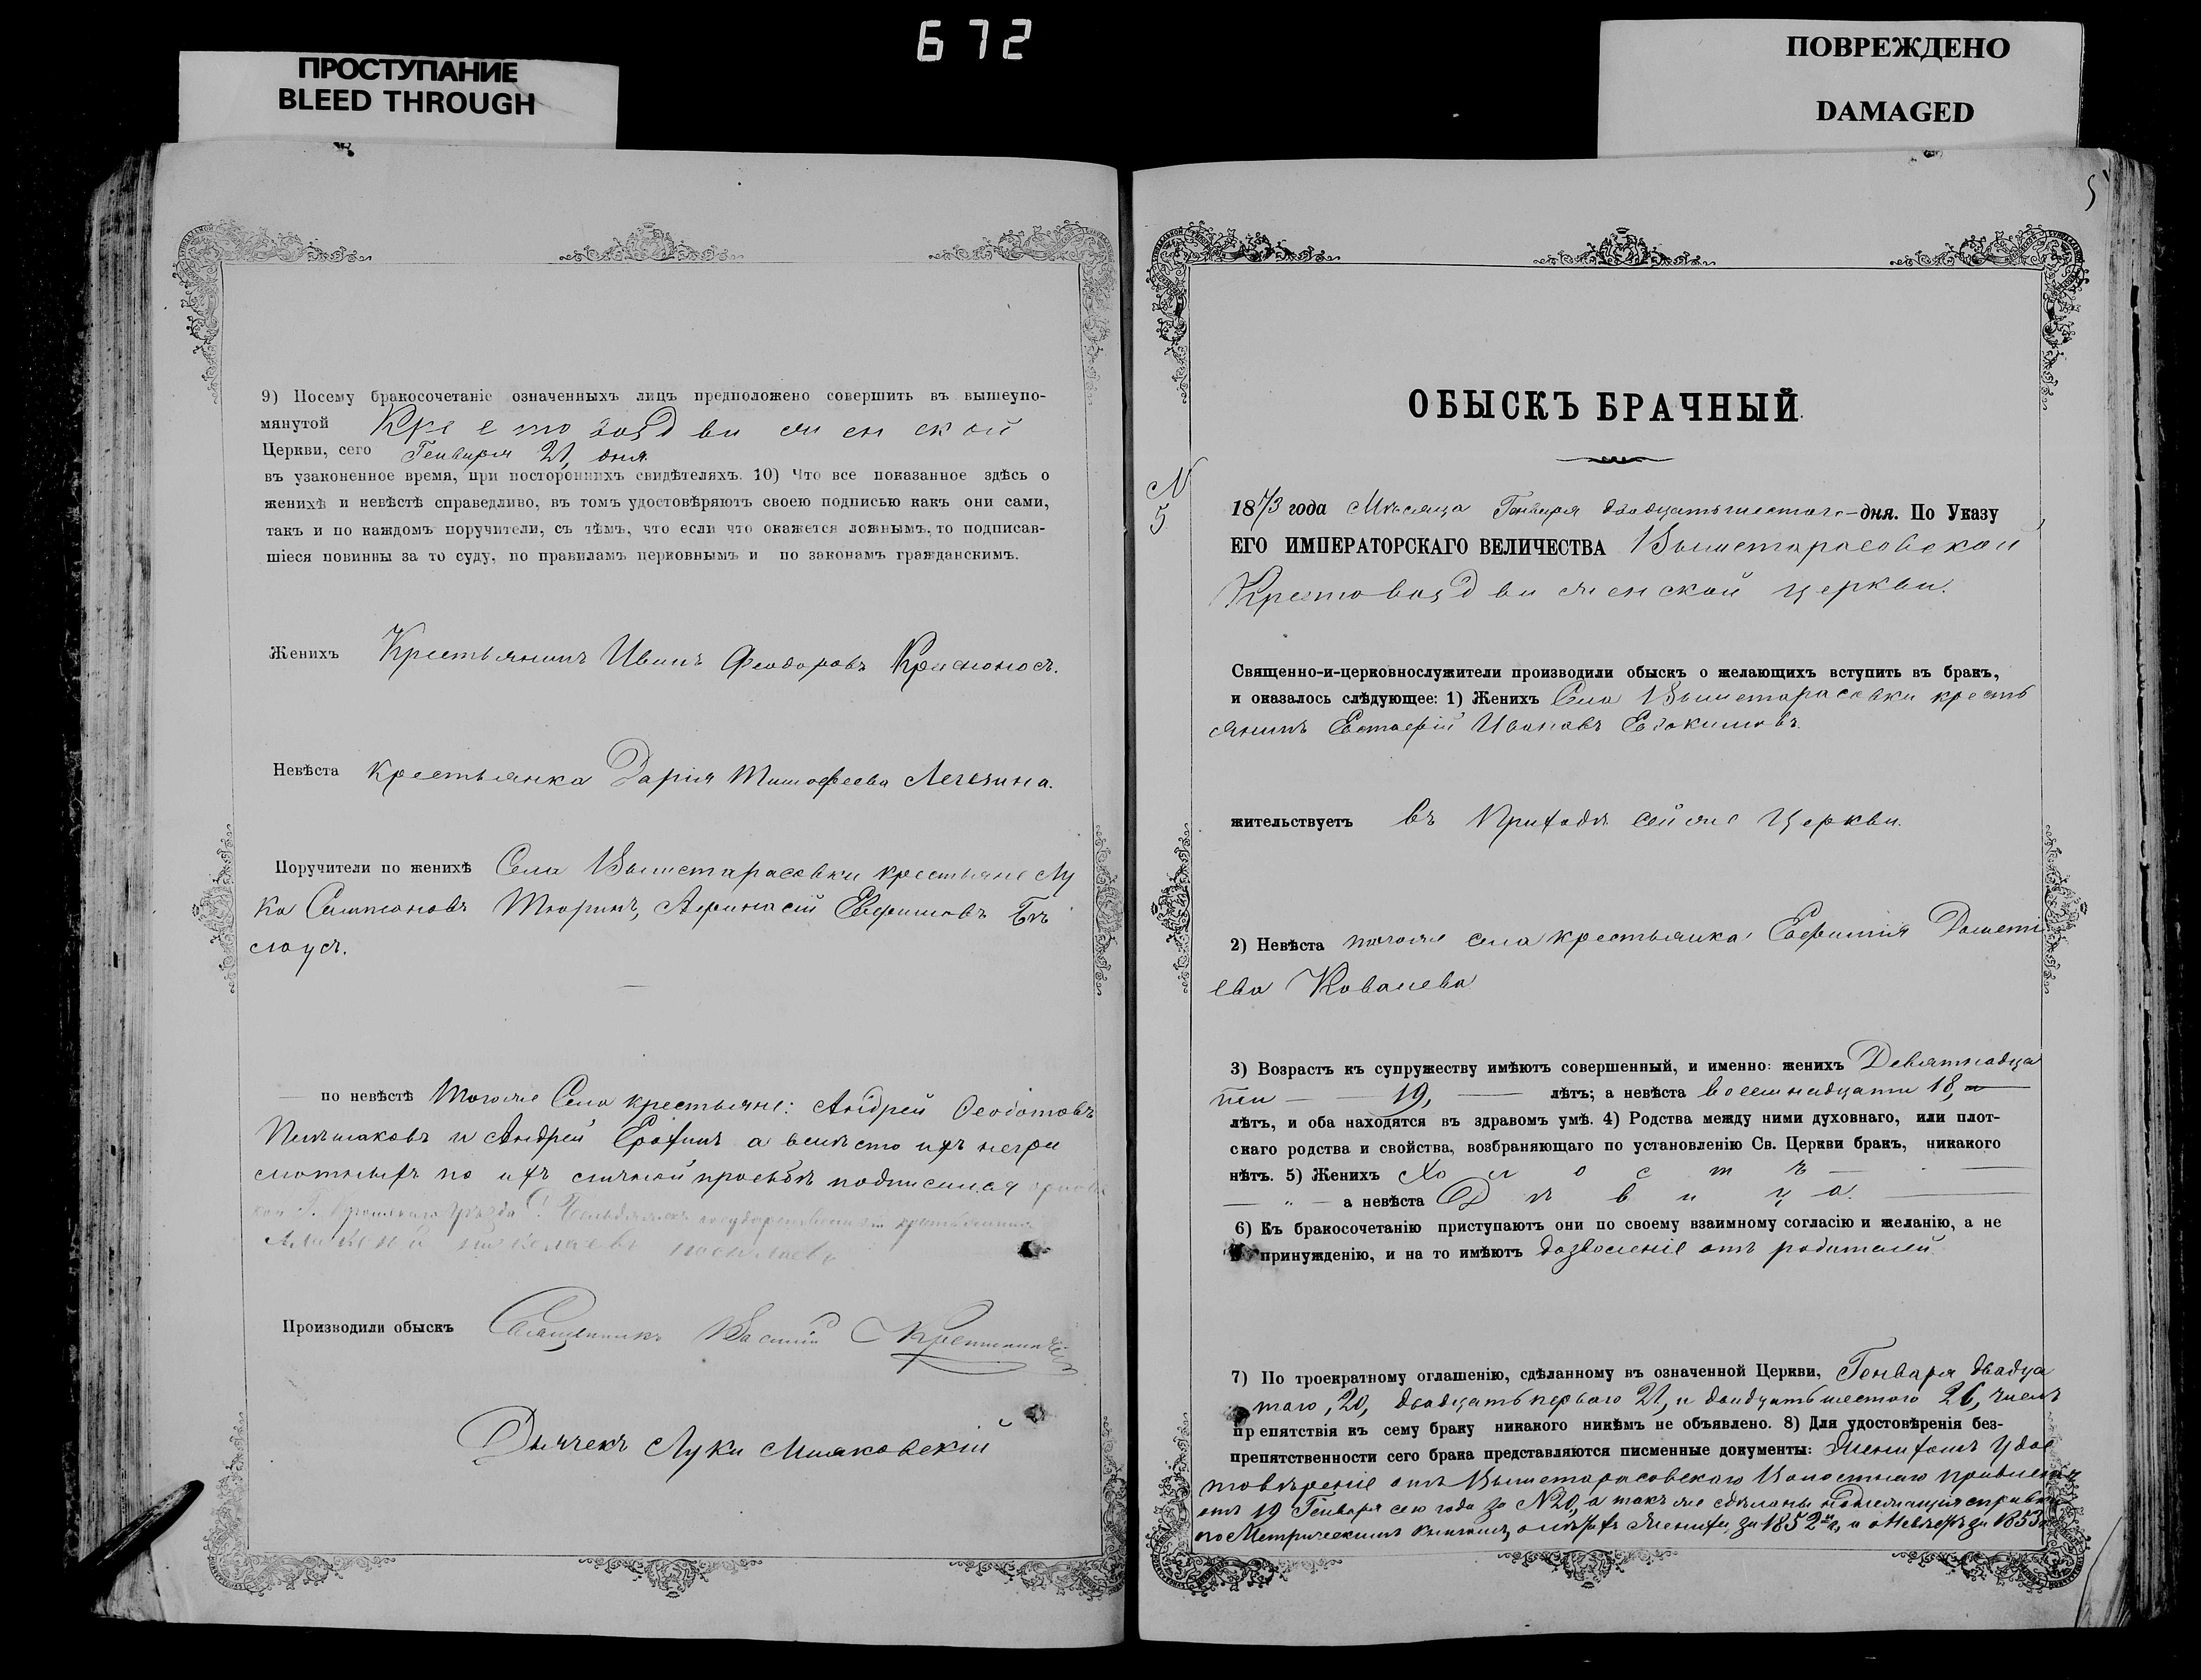 672
ПРОСТУПАНИЕ
BLEED THROUGH
ПОВРЕЖДЕНО
DAMAGED
9) Посему бракосочетаніе означенныхъ лицъ предположено совершить въ вышеупо-
мянутой Крестовоздвиженской
Церкви, сего Генваря 21, дня
въ узаконенное время, при постороннихъ свидѣтеляхъ. 10) Что все показанное здѣсь о
женихѣ и невѣстѣ справедливо, въ томъ удостовѣряютъ своею подписью какъ они сами,
такъ и по каждомъ поручители, съ тѣмъ, что если что окажется ложнымъ, то подписав-
шіеся повинны за то суду, по правиламъ церковнымъ и по законамъ гражданскимъ.
Женихъ Крестьянинъ Иванъ Феодоровъ Красноносъ.
Невѣста крестьянка Дарія Тимофеева Легезина.
Поручители по женихѣ Села Вышетарасовки крестьяне Лу
ка Сампсоновъ Тюринъ, Афанасій Евфимовъ Бѣ
лоусъ.
по невѣстѣ Тогоже Села крестьяне: Андрей Феодотовъ
и Андрей Ерохинъ а вмѣсто ихъ негра
мотныхъ по ихъ личной прозьбѣ подписался
Производили обыскъ Священникъ Василій
Дьячекъ Лука Мшаковскій
5
ОБЫСКЪ БРАЧНЫЙ
N
5
1873 года Мѣсяца Генваря двадцатьшестого дня. По Указу
ЕГО ИМПЕРАТОРСКАГО ВЕЛИЧЕСТВА Вышетарасовской
Крестовоздвиженской церкви.
Священно-и-церковнослужители производили обыскъ о желающихъ вступить въ бракъ,
и оказалось слѣдующее: 1) Женихъ Села Вышетарасовки кресть
янинъ Евстафій Ивановъ Евдокимовъ.
жительствуетъ въ Приходѣ сейже Церкви.
2) Невѣста тогоже села крестьянка Евфимія Дометі
ева Ковалева
3) Возрастъ къ супружеству имѣютъ совершенный, и именно: женихъ Девятнадца
ти 19, лѣтъ; а невѣста восемнадцати 18,
лѣтъ, и оба находятся въ здравомъ умѣ. 4) Родства между ними духовнаго, или плот-
скаго родства и свойства, возбраняющаго по установленію Св. Церкви бракъ, никакого
нѣтъ. 5) Женихъ Холостъ
а невѣста Дѣвица.
6) Къ бракосочетанію приступаютъ они по своему взаимному согласію и желанію, а не
принужденію, и на то имѣютъ дозволеніе отъ родителей
7) По троекратному оглашенію, сдѣланному въ означенной Церкви, Генваря двадца
таго, 20, двадцатьперваго 21, и двадцатьшестого 26, числъ
препятствія къ сему браку никакого никѣмъ не объявлено. 8) Для удостовѣренія без-
препятственности сего брака представляются писменные документы: Женихомъ Удос
товѣреніе отъ Вышетарасовскаго Волостнаго правленія
отъ 19 Генваря сего года за №20, а такъ же сдѣланы надлежащія справки
по Метрическимъ книгамъ, о лѣтахъ жениха, за 1852 г, и о Невѣстѣ за 1853